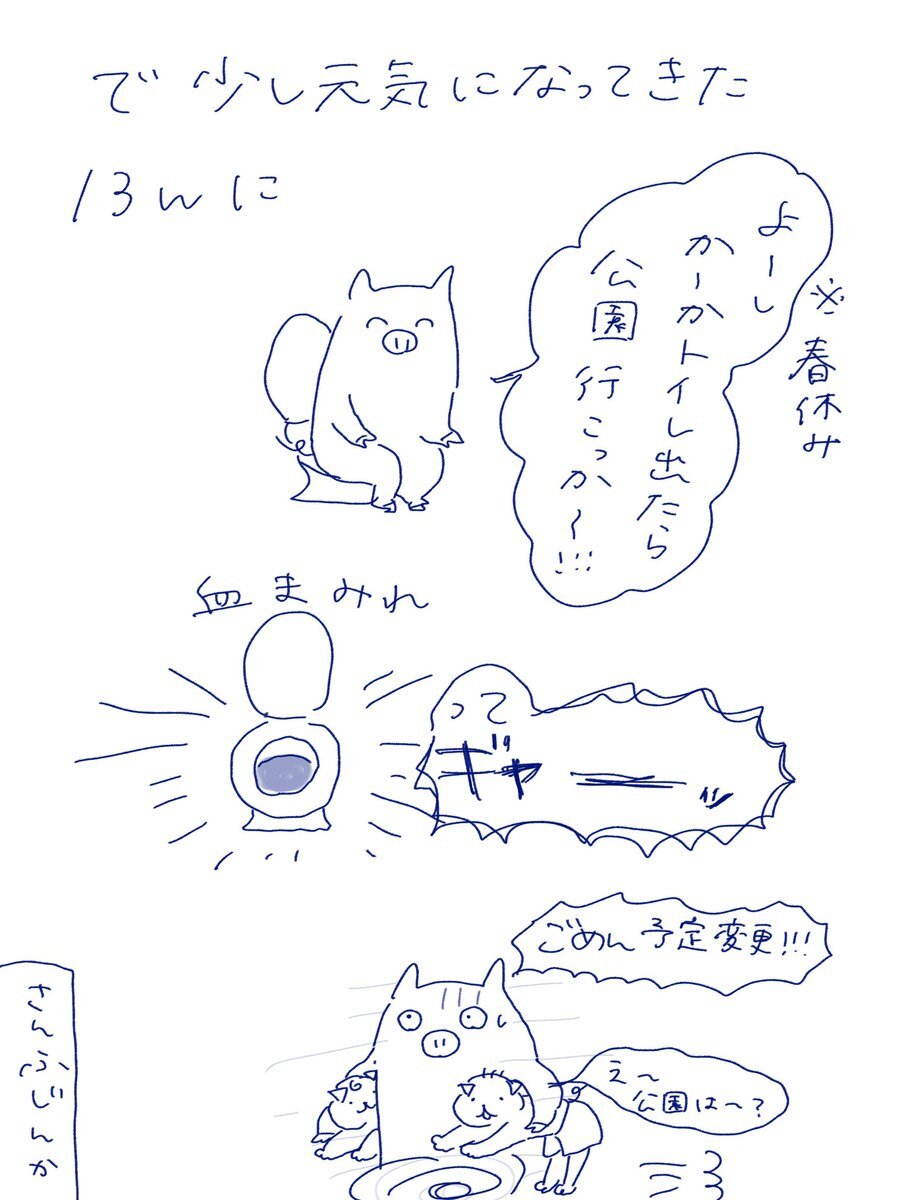 で少し元気になってきた
13wに
※春休み
よーし
かーかトイレ出たら
公園行こっか〜!!!
血まみれ
って
ギャーッ
ごめん予定変更!!!
え〜
公園は〜?
さんふじんか